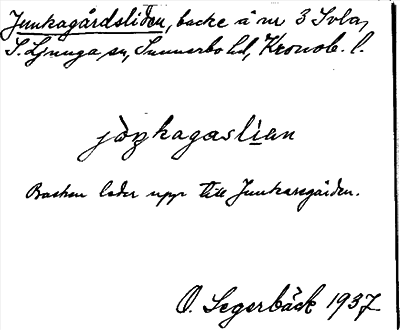 Junkagårdsliden, backe å nr 3 Ivla,
S. Ljunga sn, Sunnerbo hd, Kronob. l.
jòŋkagaslìan
Backen leder upp till Junkaregården.
O. Segerbäck 1937